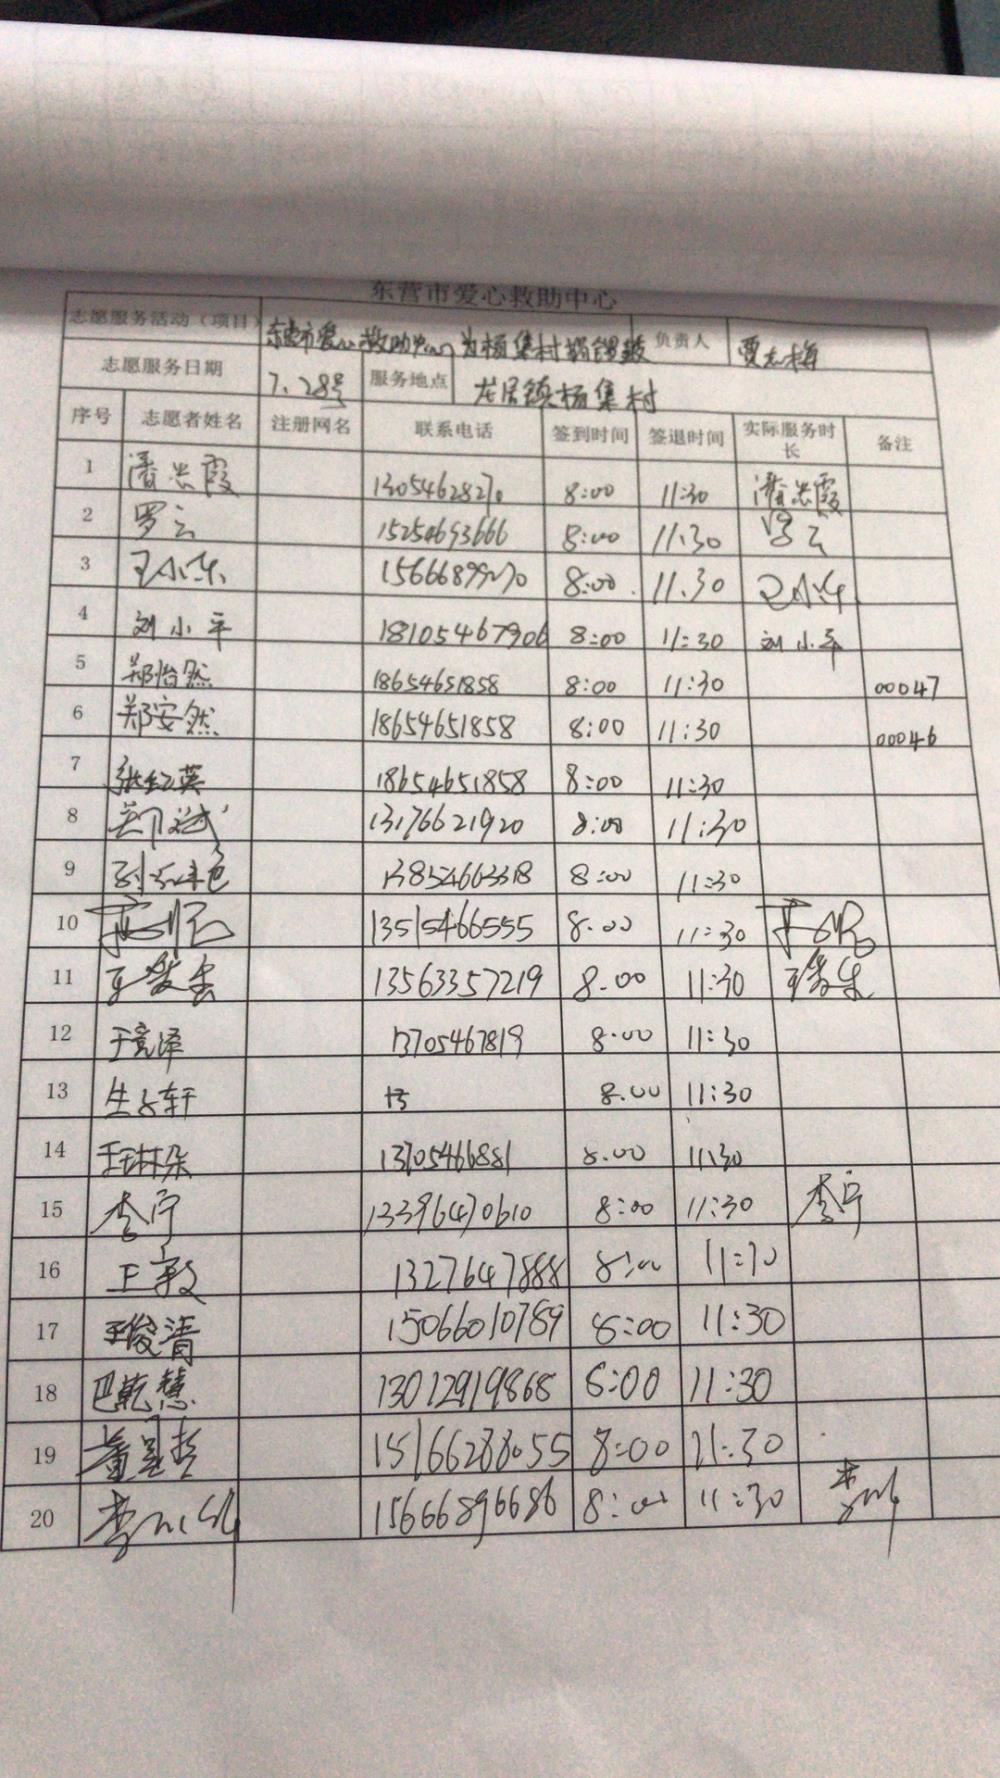 东营市爱心救助中心
志愿服务活动（项目） 东营市爱心救助中心为杨集村 负责人 贾志梅
志愿服务日期 7.28号 服务地点 龙居镇杨集村
序号 志愿者姓名 注册网名 联系电话 签到时间 签退时间 实际服务时长 备注
1 潘忠霞 13054628270 8:00 11:30 潘忠霞
2 罗云 15254693666 8:00 11:30 罗云
3 15666899270 8:00 11.30
4 刘小平 18105467906 8:00 11:30 刘小平
5 郑怡然 18654651858 8:00 11:30 00047
6 郑安然 18654651858 8:00 11:30 00046
7 张红英 18654651858 8:00 11:30
8 13176621920 8:00 11:30
9 13854663318 8:00 11:30
10 13515466555 8.00 11:30
11 13563357219 8.00 11:30
12 于竞泽 13705467819 8.00 11:30
13 生子轩 13 8.00 11:30
14 于琳朵 13705466881 8.00 11:30
15 李宁 13396470610 8:00 11:30 李宁
16 王敏 13276647888 8:00 11:30
17 王俊清 15066010789 8:00 11:30
18 巴乾慧 13012919868 8:00 11:30
19 15166288055 8:00 11:30
20 15666896686 8:00 11:30